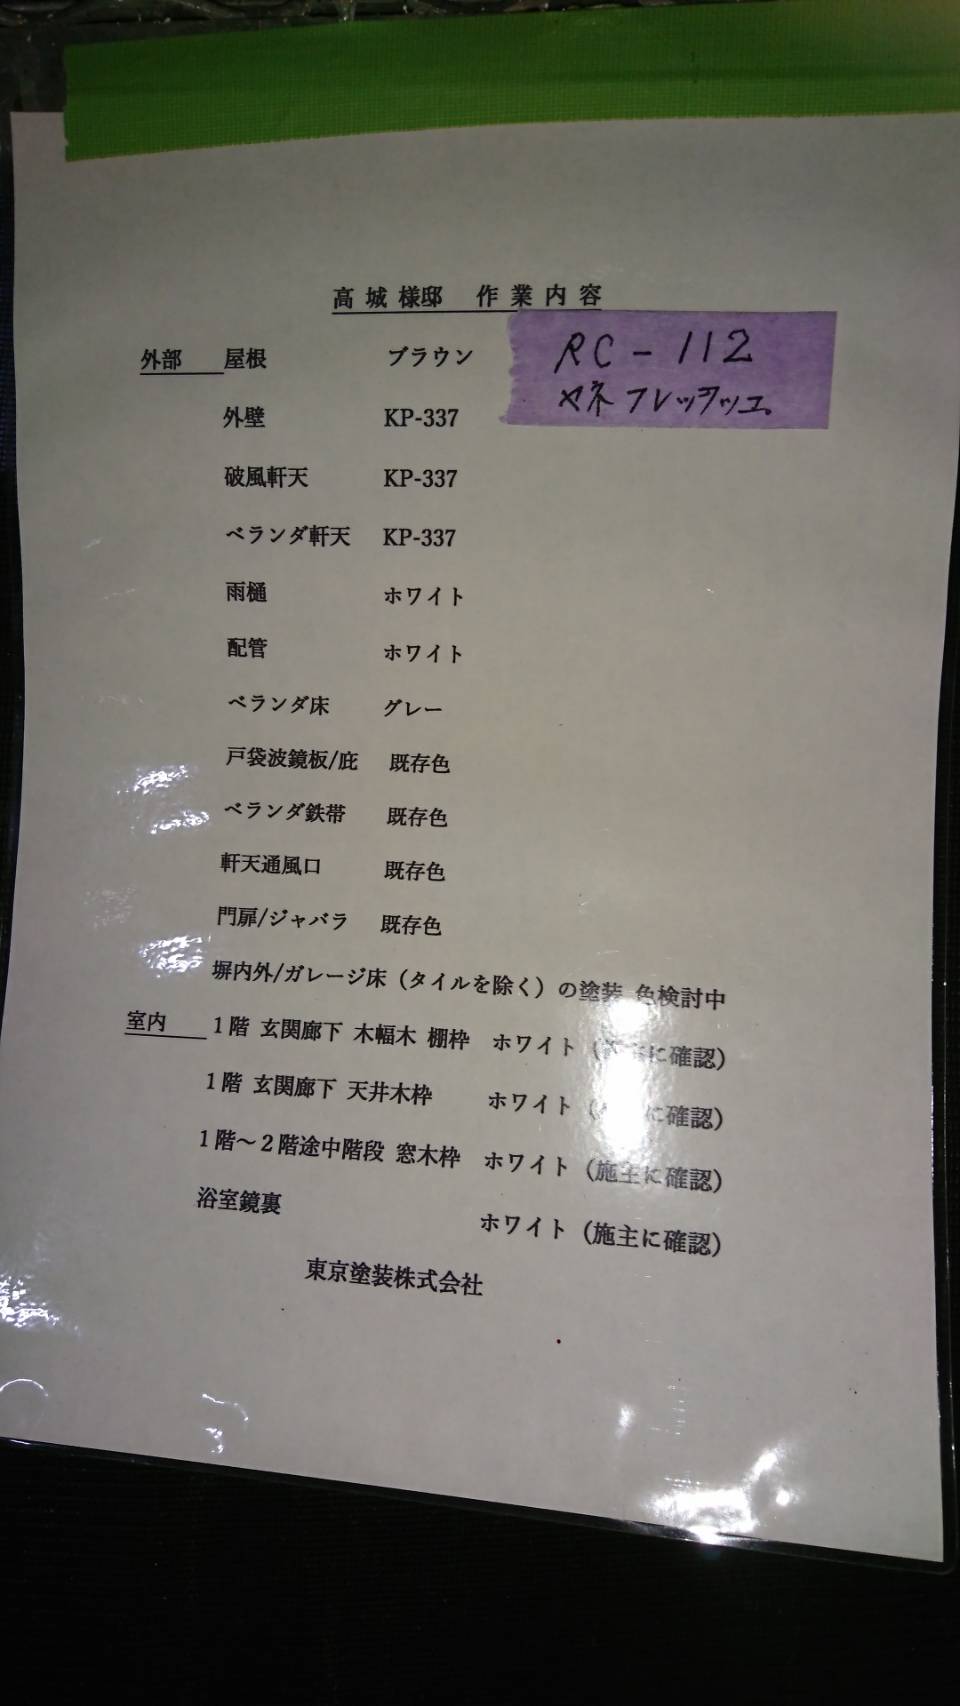 高城様邸 作業内容
外部 屋根 ブラウン
RC-112
ヤネフレッシュ
外壁 KP-337
破風軒天 KP-337
ベランダ軒天 KP-337
雨樋 ホワイト
配管 ホワイト
ベランダ床 グレー
戸袋波鏡板/庇 既存色
ベランダ鉄帯 既存色
軒天通風口 既存色
門扉/ジャバラ 既存色
塀内外/ガレージ床（タイルを除く）の塗装 色検討中
室内 1階 玄関廊下 木幅木 棚枠 ホワイト（に確認）
1階 玄関廊下 天井木枠 ホワイト（に確認）
1階～2階途中階段 窓木枠 ホワイト（施主に確認）
浴室鏡裏 ホワイト（施主に確認）
東京塗装株式会社